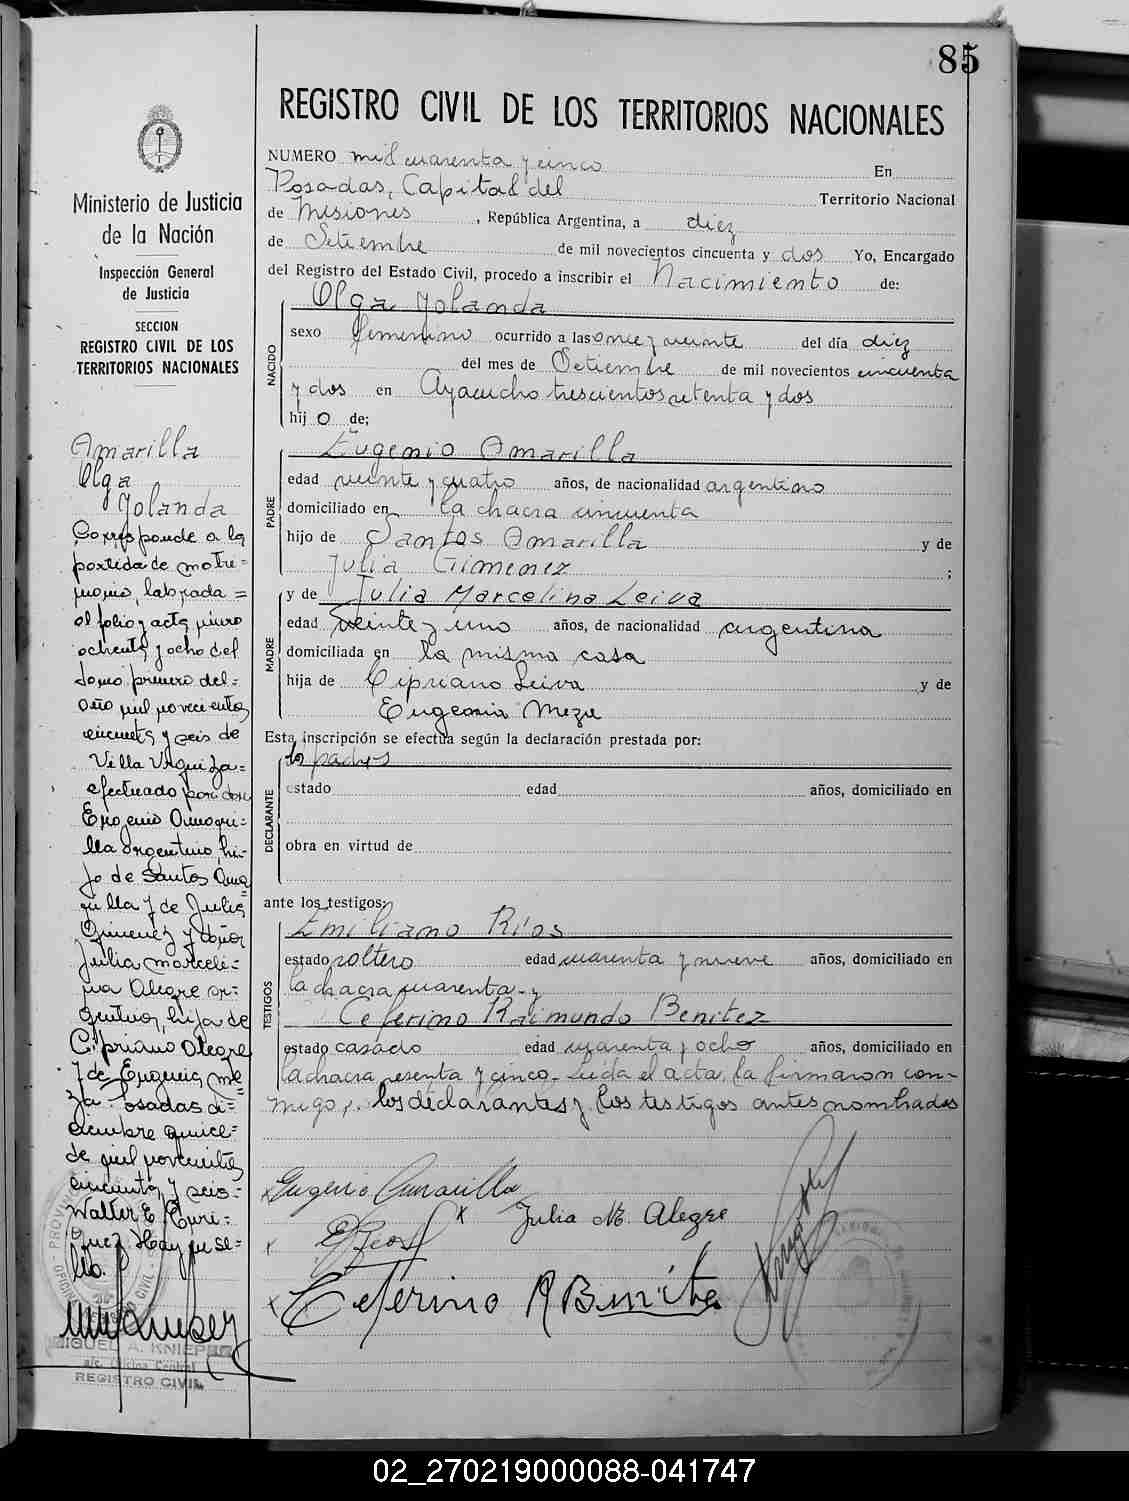 85
REGISTRO CIVIL DE LOS TERRITORIOS NACIONALES
NUMERO mil cuarenta y cinco En
Posadas, Capital del Territorio Nacional
de Misiones, República Argentina, a diez
de Setiembre de mil novecientos cincuenta y dos Yo, Encargado
del Registro del Estado Civil, procedo a inscribir el Nacimiento de:
Olga Yolanda
NACIDO
sexo femenino ocurrido a las once y veinte del día diez
del mes de Setiembre de mil novecientos cincuenta
y dos en Ayacucho trescientos setenta y dos
hij o de;
Eugenio Amarilla
PADRE
edad veinte y cuatro años, de nacionalidad argentino
domiciliado en la chacra cincuenta
hijo de Santos Amarilla y de
Julia Gimenez ;
y de Julia Marcelina Leiva
MADRE
edad veinte y uno años, de nacionalidad argentina
domiciliada en la misma casa
hija de Cipriano Leiva y de
Eugenia Meza
Esta inscripción se efectúa según la declaración prestada por:
los padres
DECLARANTE
estado edad años, domiciliado en
obra en virtud de
ante los testigos:
Emiliano Ríos
TESTIGOS
estado soltero edad cuarenta y nueve años, domiciliado en
la chacra cuarenta - y
Ceferino Raimundo Benitez
estado casado edad cuarenta y ocho años, domiciliado en
la chacra sesenta y cinco. Leída el acta, la firmaron con-
migo, los declarantes y los testigos antes nombrados
Eugenio Amarilla
x Julia M. Alegre
x
x Ceferino R Benitez
Ministerio de Justicia
de la Nación
Inspección General
de Justicia
SECCION
REGISTRO CIVIL DE LOS
TERRITORIOS NACIONALES
Amarilla
Olga
Yolanda
Corresponde a la
partida de matri=
monio, labrada =
al folio y acta, número
ochenta y ocho del
tomo primero del=
año mil novecientos
cincuenta y seis de
Villa Urquiza=
efectuado por: don
Eugenio Amari=
lla argentino, hi-
jo de Santos Ama=
rilla y de Julia
Gimenez y doña
Julia marceli=
na Alegre ar=
gentina, hija de
Cipriano Alegre
y de Eugenia me
za. Posadas di=
ciembre quince=
de mil novecientos
cincuenta y seis.
Walter E.
Hay un se=
llo.
MIGUEL A. KNIEPER
a/c. Oficina Central
REGISTRO CIVIL
02_270219000088-041747